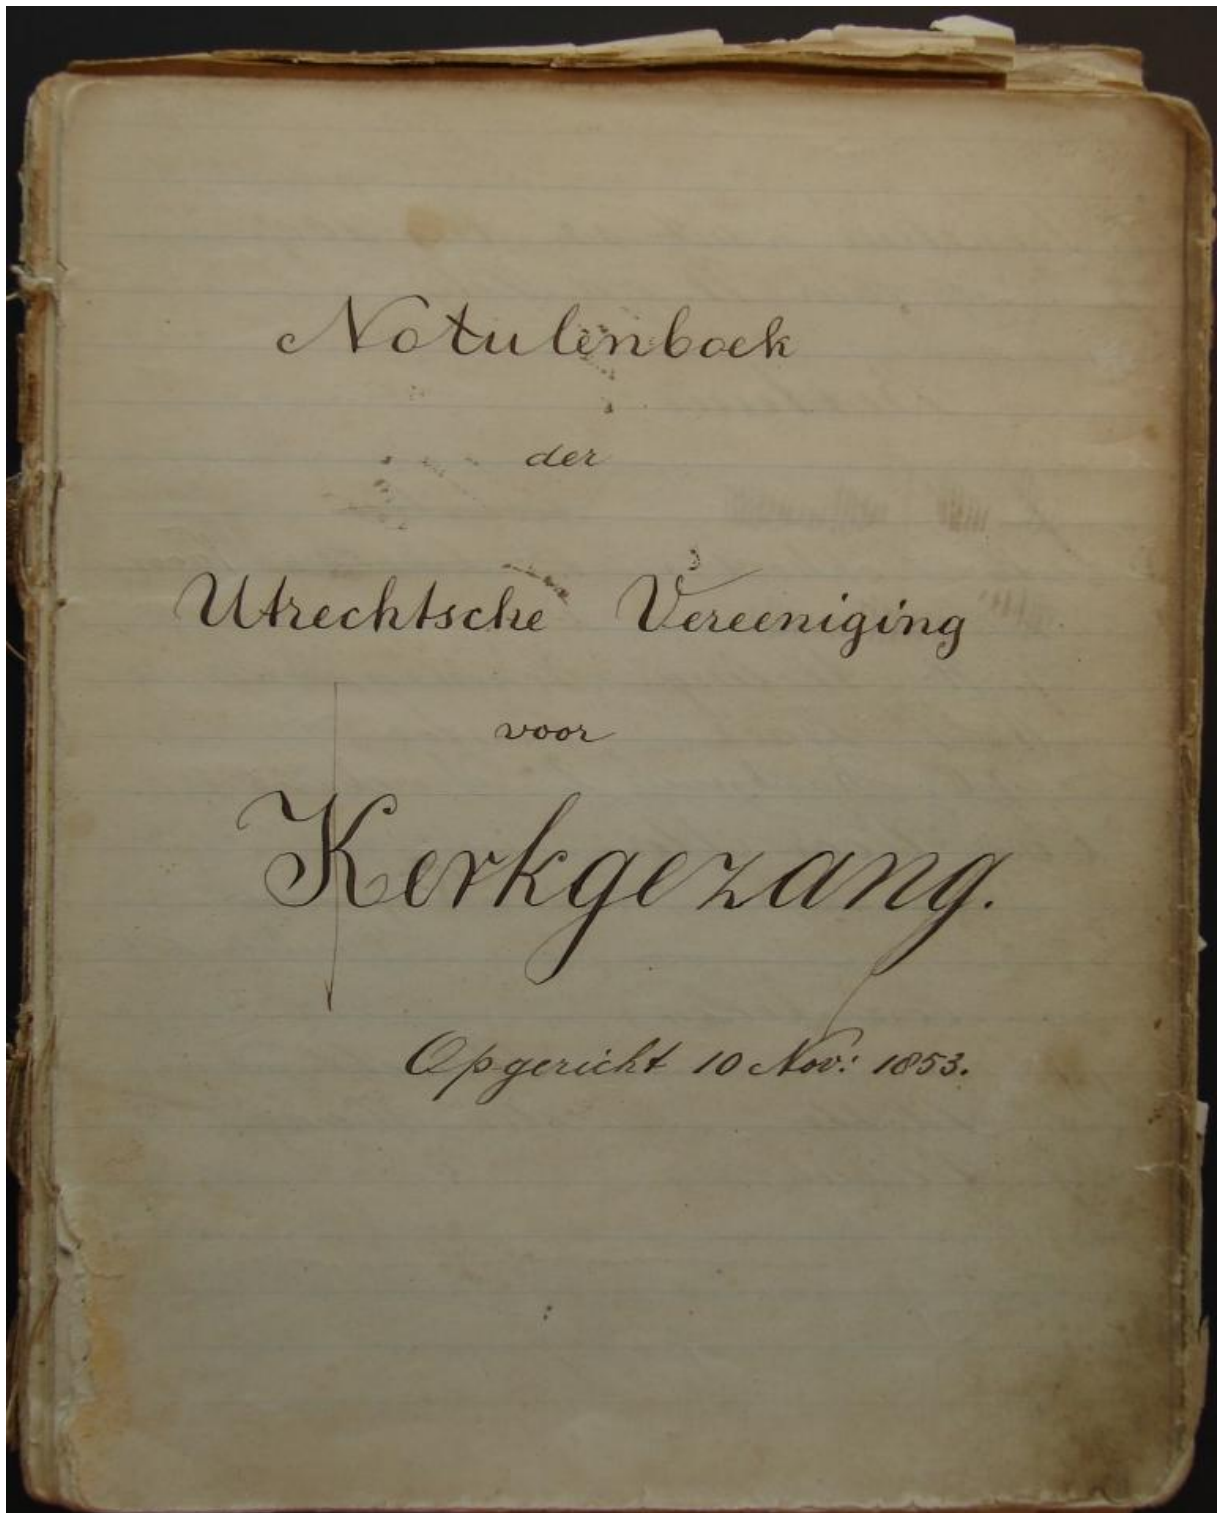 Notulenboek
der
Utrechtsche Vereeniging
voor
Kerkgezang.
Opgericht 10 Nov: 1853.